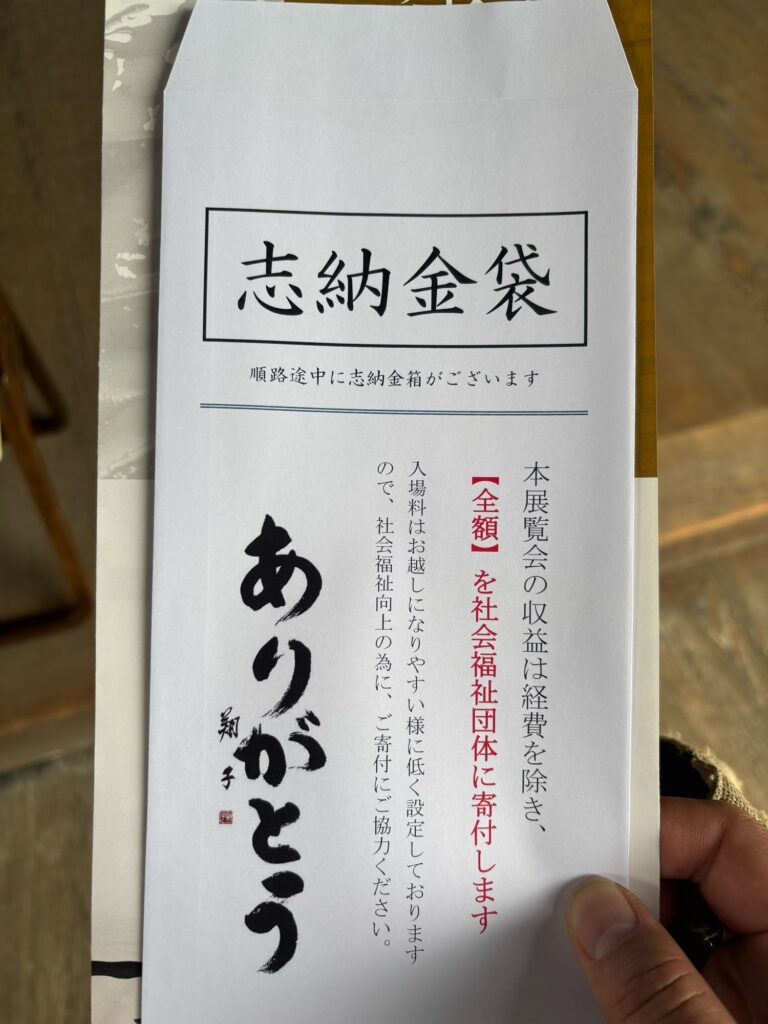 志納金袋
順路途中に志納金箱がございます
本展覧会の収益は経費を除き、
【全額】を社会福祉団体に寄付します
入場料はお越しになりやすい様に低く設定しております
ので、社会福祉向上の為に、ご寄付にご協力ください。
ありがとう
翔子